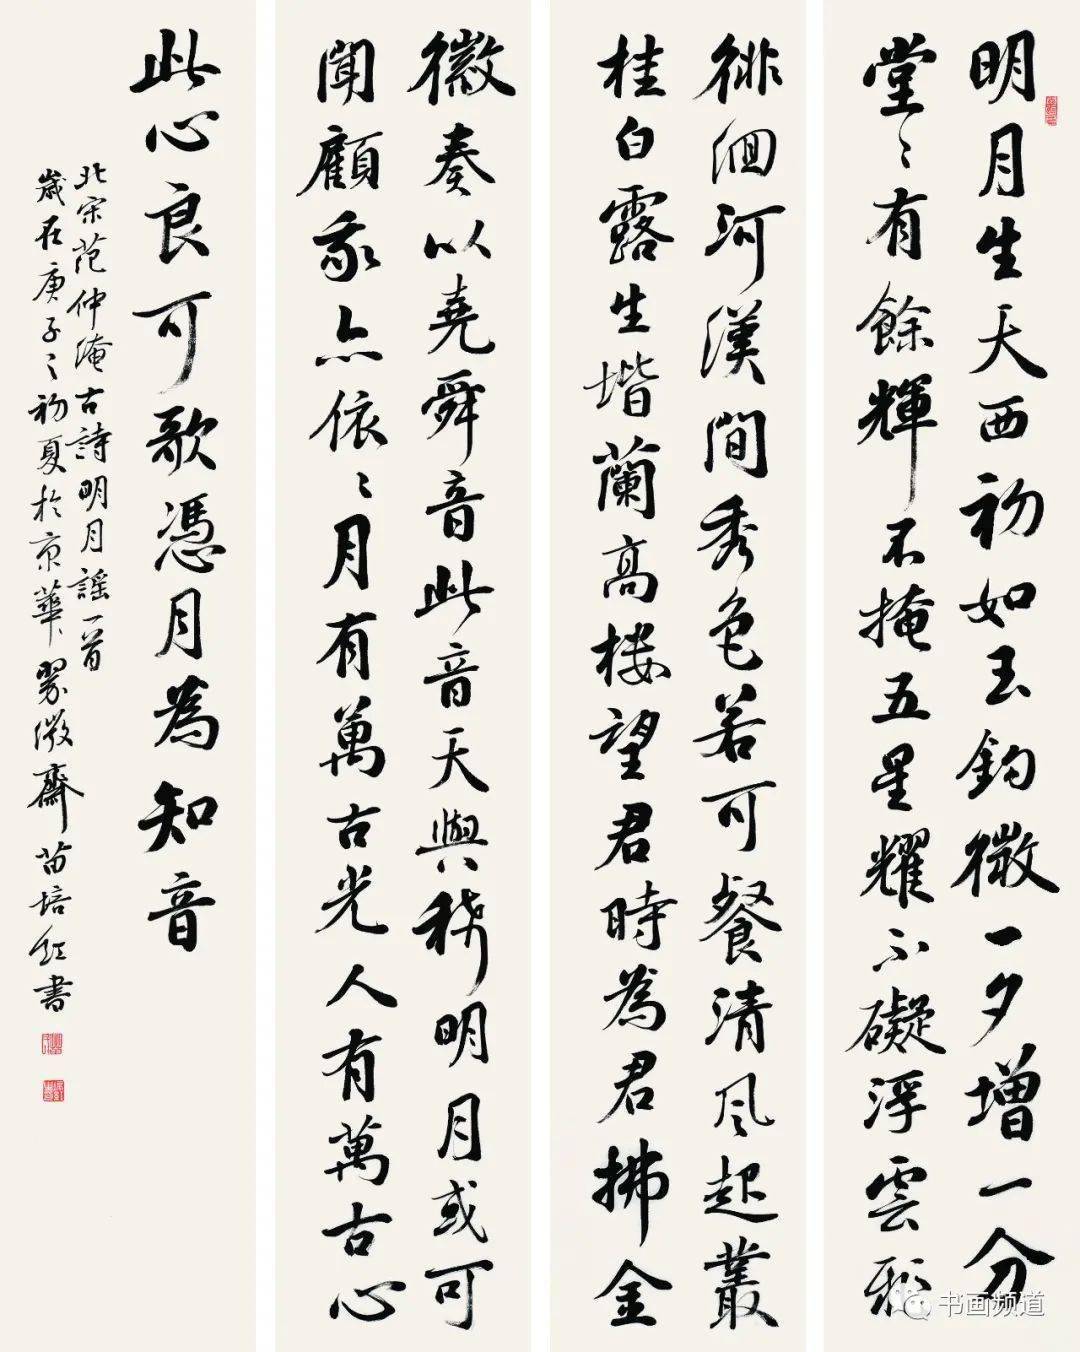 明月生天西初如玉鈎微一夕增一分
堂〻有餘輝不掩五星耀不礙浮雲飛
徘徊河漢間秀色若可餐清風起叢
桂白露生堦蘭高樓望君時為君拂金
徽奏以堯舜音此音天與稀明月或可
聞顧我亦依〻月有萬古光人有萬古心
此心良可歌憑月為知音
北宋范仲淹古詩明月謠一首
歲在庚子〻初夏於京華翠微齋苗培紅書
书画频道